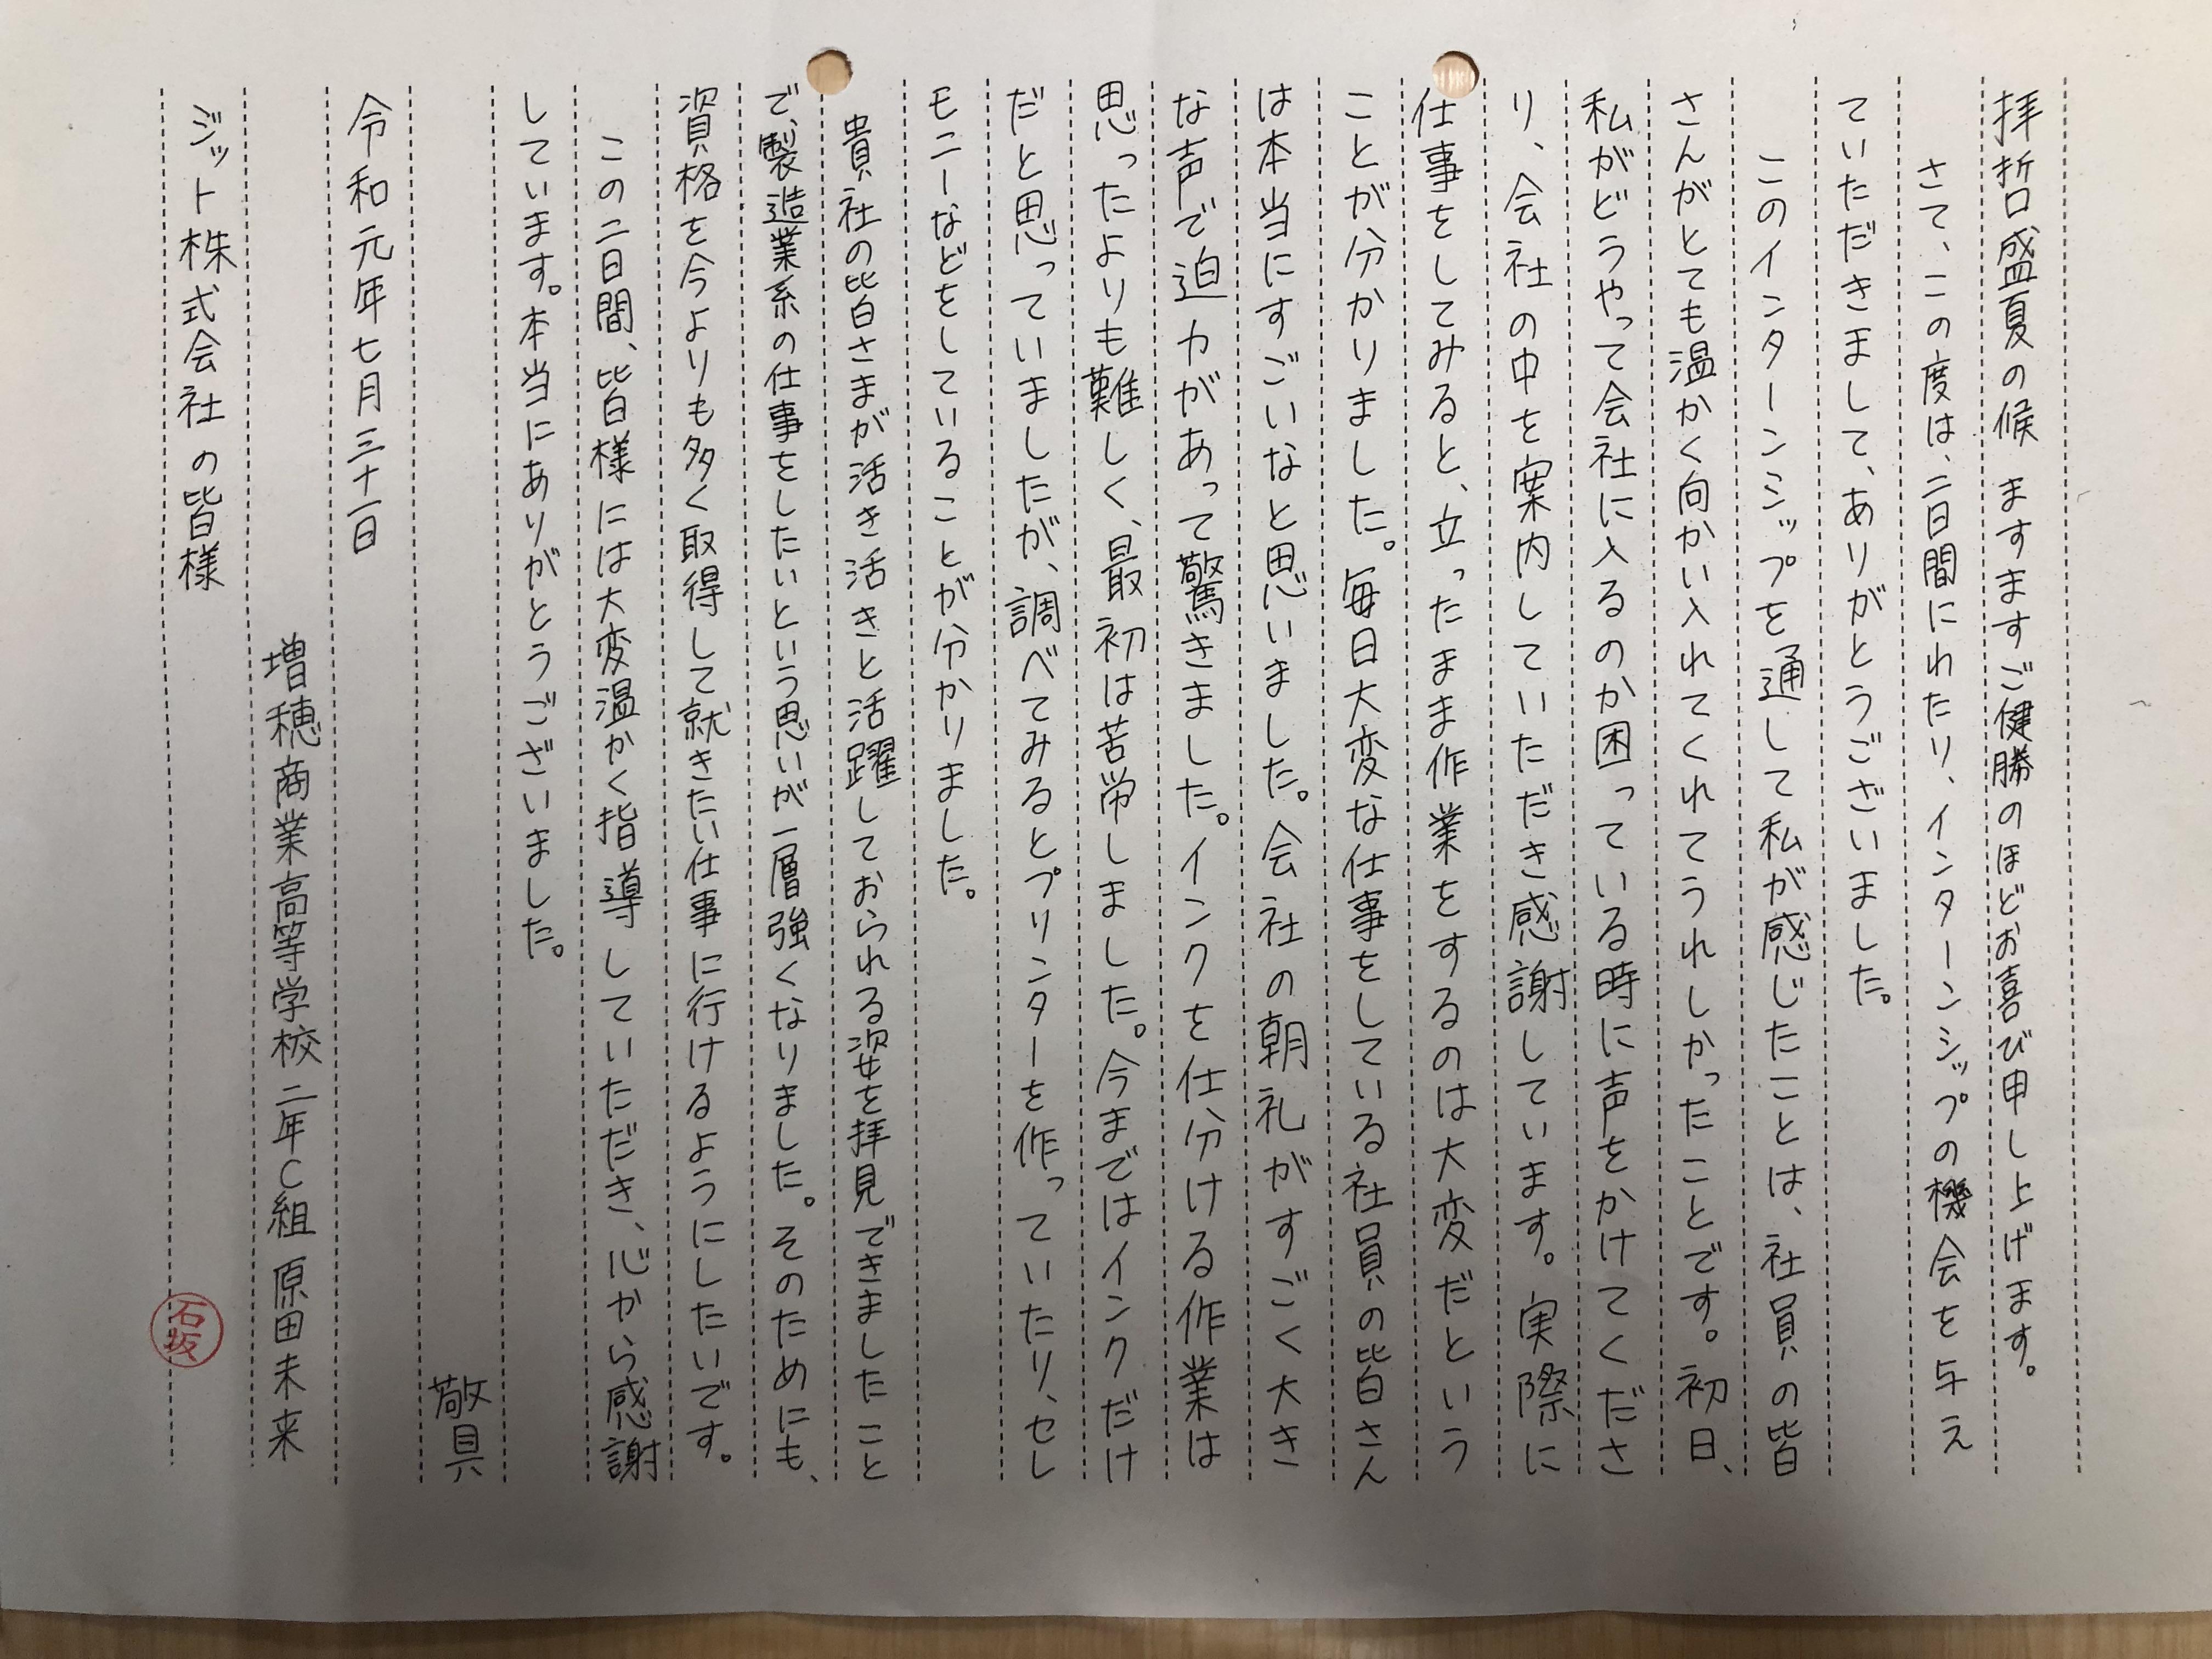 拝啓盛夏の候 ますますご健勝のほどお喜び申し上げます。
さて、この度は、二日間にわたり、インターンシップの機会を与え
ていただきまして、ありがとうございました。
このインターンシップを通して私が感じたことは、社員の皆
さんがとても温かく向かい入れてくれてうれしかったことです。初日、
私がどうやって会社に入るのか困っている時に声をかけてくださ
り、会社の中を案内していただき感謝しています。実際に
仕事をしてみると、立ったまま作業をするのは大変だという
ことが分かりました。毎日大変な仕事をしている社員の皆さん
は本当にすごいなと思いました。会社の朝礼がすごく大き
な声で迫力があって驚きました。インクを仕分ける作業は
思ったよりも難しく、最初は苦労しました。今まではインクだけ
だと思っていましたが、調べてみるとプリンターを作っていたり、セレ
モニーなどをしていることが分かりました。
貴社の皆さまが活き活きと活躍しておられる姿を拝見できましたこと
で、製造業系の仕事をしたいという思いが一層強くなりました。そのためにも、
資格を今よりも多く取得して就きたい仕事に行けるようにしたいです。
この二日間、皆様には大変温かく指導していただき、心から感謝
しています。本当にありがとうございました。
敬具
令和元年七月三十一日
増穂商業高等学校二年C組 原田未来
ジット株式会社の皆様
石坂